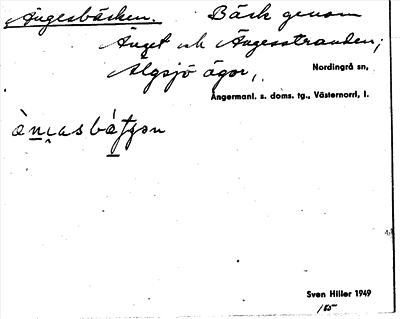 Ängesbäcken. Bäck genom
Änget och Ängesstranden;
Älgsjö ägor,
Nordingrå sn,
Ångermanl. s. doms. tg., Västernorrl. l.
Sven Hiller 1949